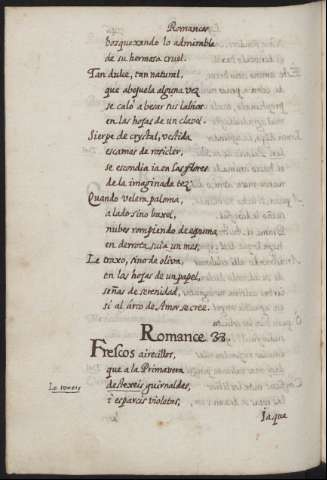 Romances
bosquexando lo admirable
de su hermosa cruel.
Tan dulce, tan natural,
que abejuela alguna vez
se caló a besar sus labios
en las hojas de un clavel.
Sierpe de crystal, vestida
escamas de rosicler,
se escondia ia en las flores
de la imaginada tez,
Quando velera paloma,
alado sino baxel,
nubes rompiendo de espuma,
en derrota suia un mes,
Le traxo, sino de oliva,
en las hojas de un papel,
señas de serenidad,
si al arco de Amor se cree.
Romance 33.
Frescos airecillos,
que a la Primavera
destexeis guirnaldes,
i esparcis violetas,
Le texeis
Ia que